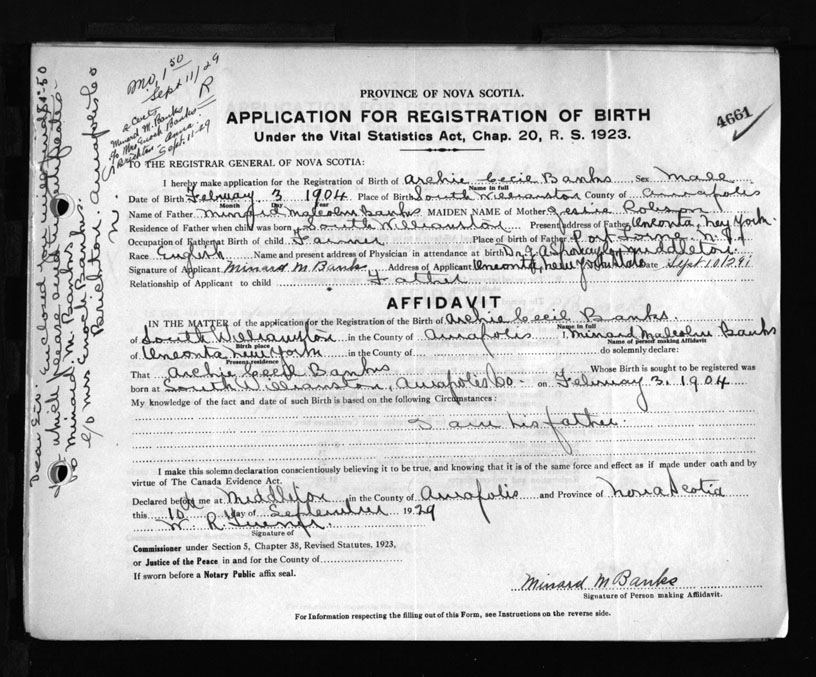 MO. 1 50
Sept 11/29
R
& Cert
Minard M. Banks
c/o Mrs Enoch Banks
Brickton Anna.
Sept. 11-29
Dear Sir: Enclosed you will find $1.50
which please send the certificate
to Minard M. Banks.
c/o Mrs Enoch Banks.
Brickton Annapolis Co
N.
4661
PROVINCE OF NOVA SCOTIA.
APPLICATION FOR REGISTRATION OF BIRTH
Under the Vital Statistics Act, Chap. 20, R. S. 1923.
TO THE REGISTRAR GENERAL OF NOVA SCOTIA:
I hereby make application for the Registration of Birth of Archie Cecil Banks Sex Male
Name in full
Date of Birth February 3 1904 Place of Birth South Williamston County of Annapolis
Month Day Year
Name of Father Minard Malcolm Banks MAIDEN NAME of Mother
Residence of Father when child was born South Williamston Present address of Father Oneonta, New York.
Occupation of Father at Birth of child Farmer Place of birth of Father Port Lorne N.S.
Race English Name and present address of Physician in attendance at birth Dr. Middleton.
Signature of Applicant Minard M Banks Address of Applicant Oneonta, New York Date Sept 10/29
Relationship of Applicant to child Father
AFFIDAVIT
IN THE MATTER of the application for the Registration of the Birth of Archie Cecil Banks.
Name in full
of South Williamston in the County of Annapolis I, Minard Malcolm Banks
Birth place Name of person making Affidavit
of Oneonta New York in the County of do solemnly declare:
Present residence
That Archie Cecil Banks Whose Birth is sought to be registered was
born at South Williamston, Annapolis Co. on February 3, 1904
My knowledge of the fact and date of such Birth is based on the following Circumstances:
I am his father.
I make this solemn declaration conscientiously believing it to be true, and knowing that it is of the same force and effect as if made under oath and by
virtue of The Canada Evidence Act.
Declared before me at Middleton in the County of Annapolis and Province of Nova Scotia
this 10th day of September 1929
W. R.
Signature of
Commissioner under Section 5, Chapter 38, Revised Statutes, 1923,
or Justice of the Peace in and for the County of
If sworn before a Notary Public affix seal.
Minard M Banks
Signature of Person making Affidavit.
For Information respecting the filling out of this Form, see Instructions on the reverse side.